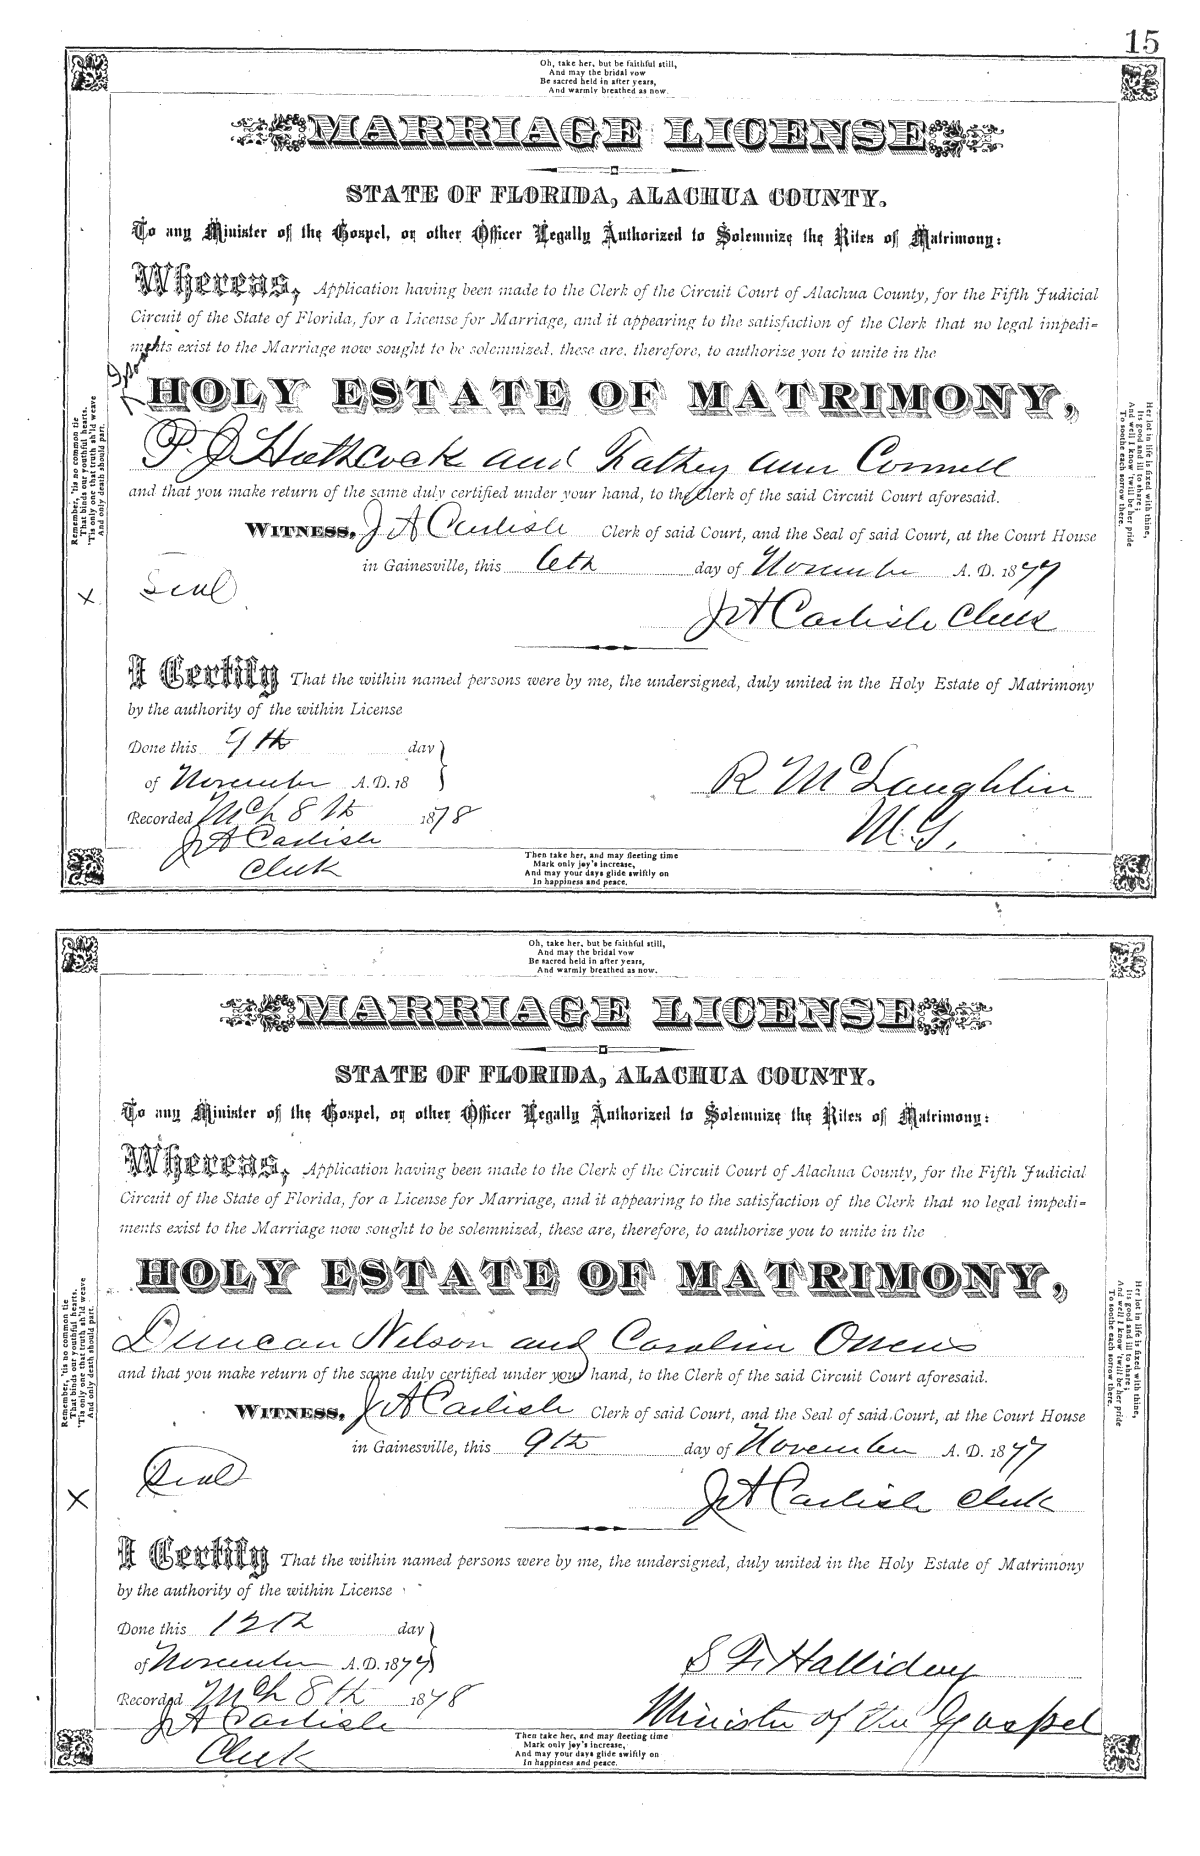 15
Oh, take her, but be faithful still,
And may the bridal vow
Be sacred held in after years,
And warmly breathed as now.
MARRIAGE LICENSE
STATE OF FLORIDA, ALACHUA COUNTY.
To any Minister of the Gospel, or other Officer Legally Authorized to Solemnize the Rites of Matrimony:
Whereas, Application having been made to the Clerk of the Circuit Court of Alachua County, for the Fifth Judicial
Circuit of the State of Florida, for a License for Marriage, and it appearing to the satisfaction of the Clerk that no legal impedi-
ments exist to the Marriage now sought to be solemnized, these are, therefore, to authorize you to unite in the
HOLY ESTATE OF MATRIMONY,
P. J. Hathcock and Kathey Ann Connell
and that you make return of the same duly certified under your hand, to the Clerk of the said Circuit Court aforesaid.
WITNESS, J A Carlisle Clerk of said Court, and the Seal of said Court, at the Court House
in Gainesville, this 6th day of November A. D. 1877
Seal
J A Carlisle Clerk
I Certify That the within named persons were by me, the undersigned, duly united in the Holy Estate of Matrimony
by the authority of the within License
Done this 9th day
of November A. D. 18
R McLaughlin
Recorded Mch 8th 1878
M. G.
J A Carlisle
Clerk
Then take her, and may fleeting time
Mark only joy's increase,
And may your days glide swiftly on
In happiness and peace.
Remember, 'tis no common tie
That binds our youthful hearts,
'Tis only one that truth sh'ld weave
And only death should part.
X
Her lot in life is fixed with thine,
Its good and ill to share;
And well I know 'twill be her pride
To soothe each sorrow there.
Oh, take her, but be faithful still,
And may the bridal vow
Be sacred held in after years,
And warmly breathed as now.
MARRIAGE LICENSE
STATE OF FLORIDA, ALACHUA COUNTY.
To any Minister of the Gospel, or other Officer Legally Authorized to Solemnize the Rites of Matrimony:
Whereas, Application having been made to the Clerk of the Circuit Court of Alachua County, for the Fifth Judicial
Circuit of the State of Florida, for a License for Marriage, and it appearing to the satisfaction of the Clerk that no legal impedi-
ments exist to the Marriage now sought to be solemnized, these are, therefore, to authorize you to unite in the
HOLY ESTATE OF MATRIMONY,
Duncan Nelson and Carolin Owens
and that you make return of the same duly certified under your hand, to the Clerk of the said Circuit Court aforesaid.
WITNESS, J A Carlisle Clerk of said Court, and the Seal of said Court, at the Court House
in Gainesville, this 9th day of November A. D. 1877
Seal
J A Carlisle Clerk
I Certify That the within named persons were by me, the undersigned, duly united in the Holy Estate of Matrimony
by the authority of the within License
Done this 12th day
of November A. D. 1877
S. F. Halliday
Recorded Mch 8th 1878
Minister of the Gospel
J A Carlisle
Clerk
Then take her, and may fleeting time
Mark only joy's increase,
And may your days glide swiftly on
In happiness and peace.
Remember, 'tis no common tie
That binds our youthful hearts,
'Tis only one that truth sh'ld weave
And only death should part.
X
Her lot in life is fixed with thine,
Its good and ill to share;
And well I know 'twill be her pride
To soothe each sorrow there.